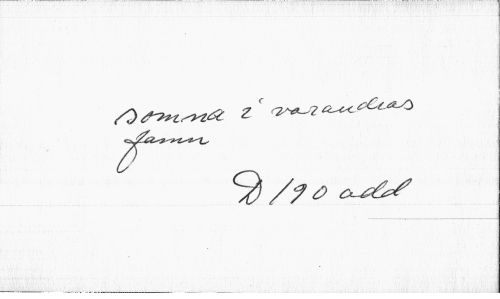 somna i varandras
famn
D 190 add